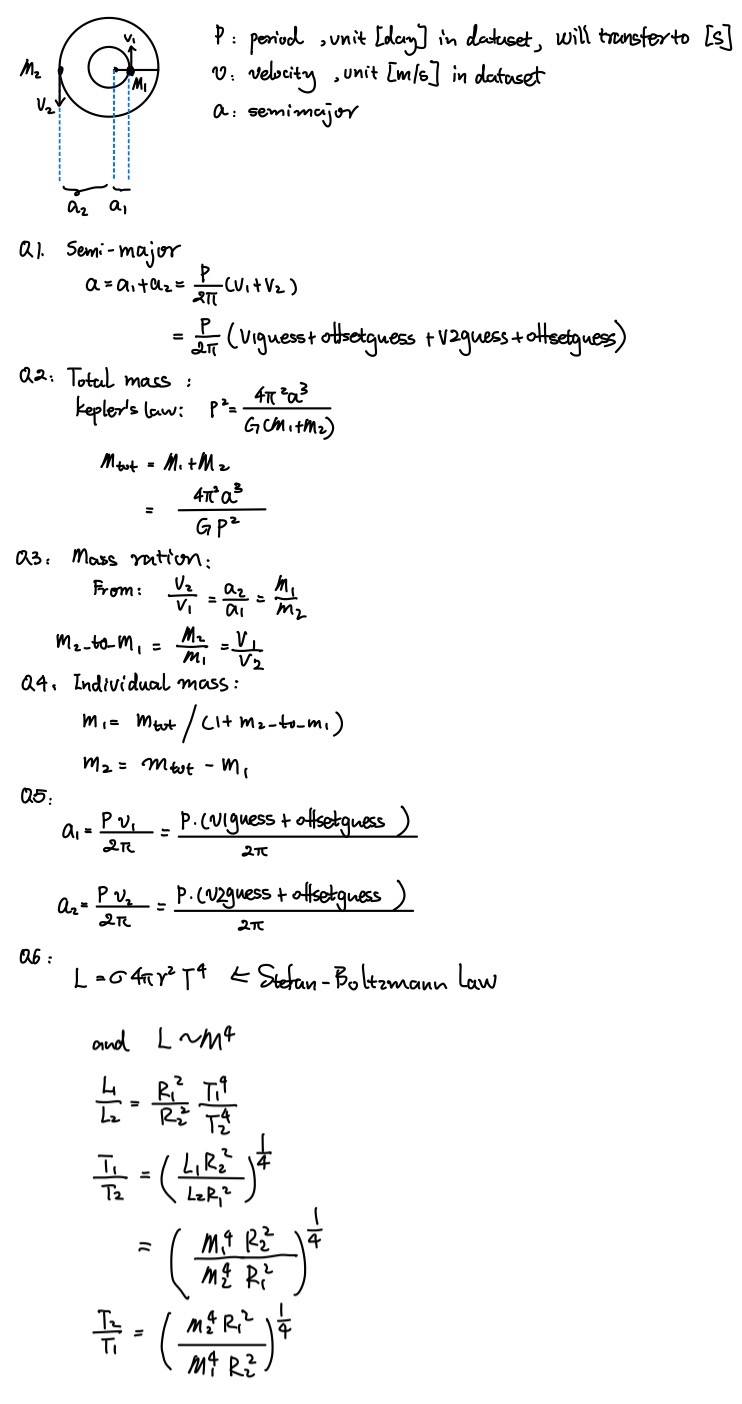 P: period , unit [day] in dataset, will transfer to [s]
v: velocity , unit [m/s] in dataset
a: semimajor
M₂ V₂ V₁ M₁
a₂ a₁
Q1. Semi-major
a = a₁+a₂ = P/2π (V₁+V₂)
= P/2π (V1guess + offsetguess + V2guess + offsetguess)
Q2: Total mass :
kepler's law: P² = 4π²a³/G(M₁+M₂)
Mtot = M₁+M₂
= 4π²a³/GP²
Q3: Mass ration:
From: V₂/V₁ = a₂/a₁ = M₁/M₂
m₂_to_m₁ = M₂/M₁ = V₁/V₂
Q4. Individual mass:
m₁ = mtot / (1 + m₂_to_m₁)
m₂ = mtot - m₁
Q5:
a₁ = Pv₁/2π = P·(v1guess + offsetguess)/2π
a₂ = Pv₂/2π = P·(v2guess + offsetguess)/2π
Q6:
L = σ4πr²T⁴ ← Stefan-Boltzmann Law
and L ~ M⁴
L₁/L₂ = R₁²/R₂² T₁⁴/T₂⁴
T₁/T₂ = (L₁R₂²/L₂R₁²)^1/4
= (M₁⁴ R₂²/M₂⁴ R₁²)^1/4
T₂/T₁ = (M₂⁴ R₁²/M₁⁴ R₂²)^1/4